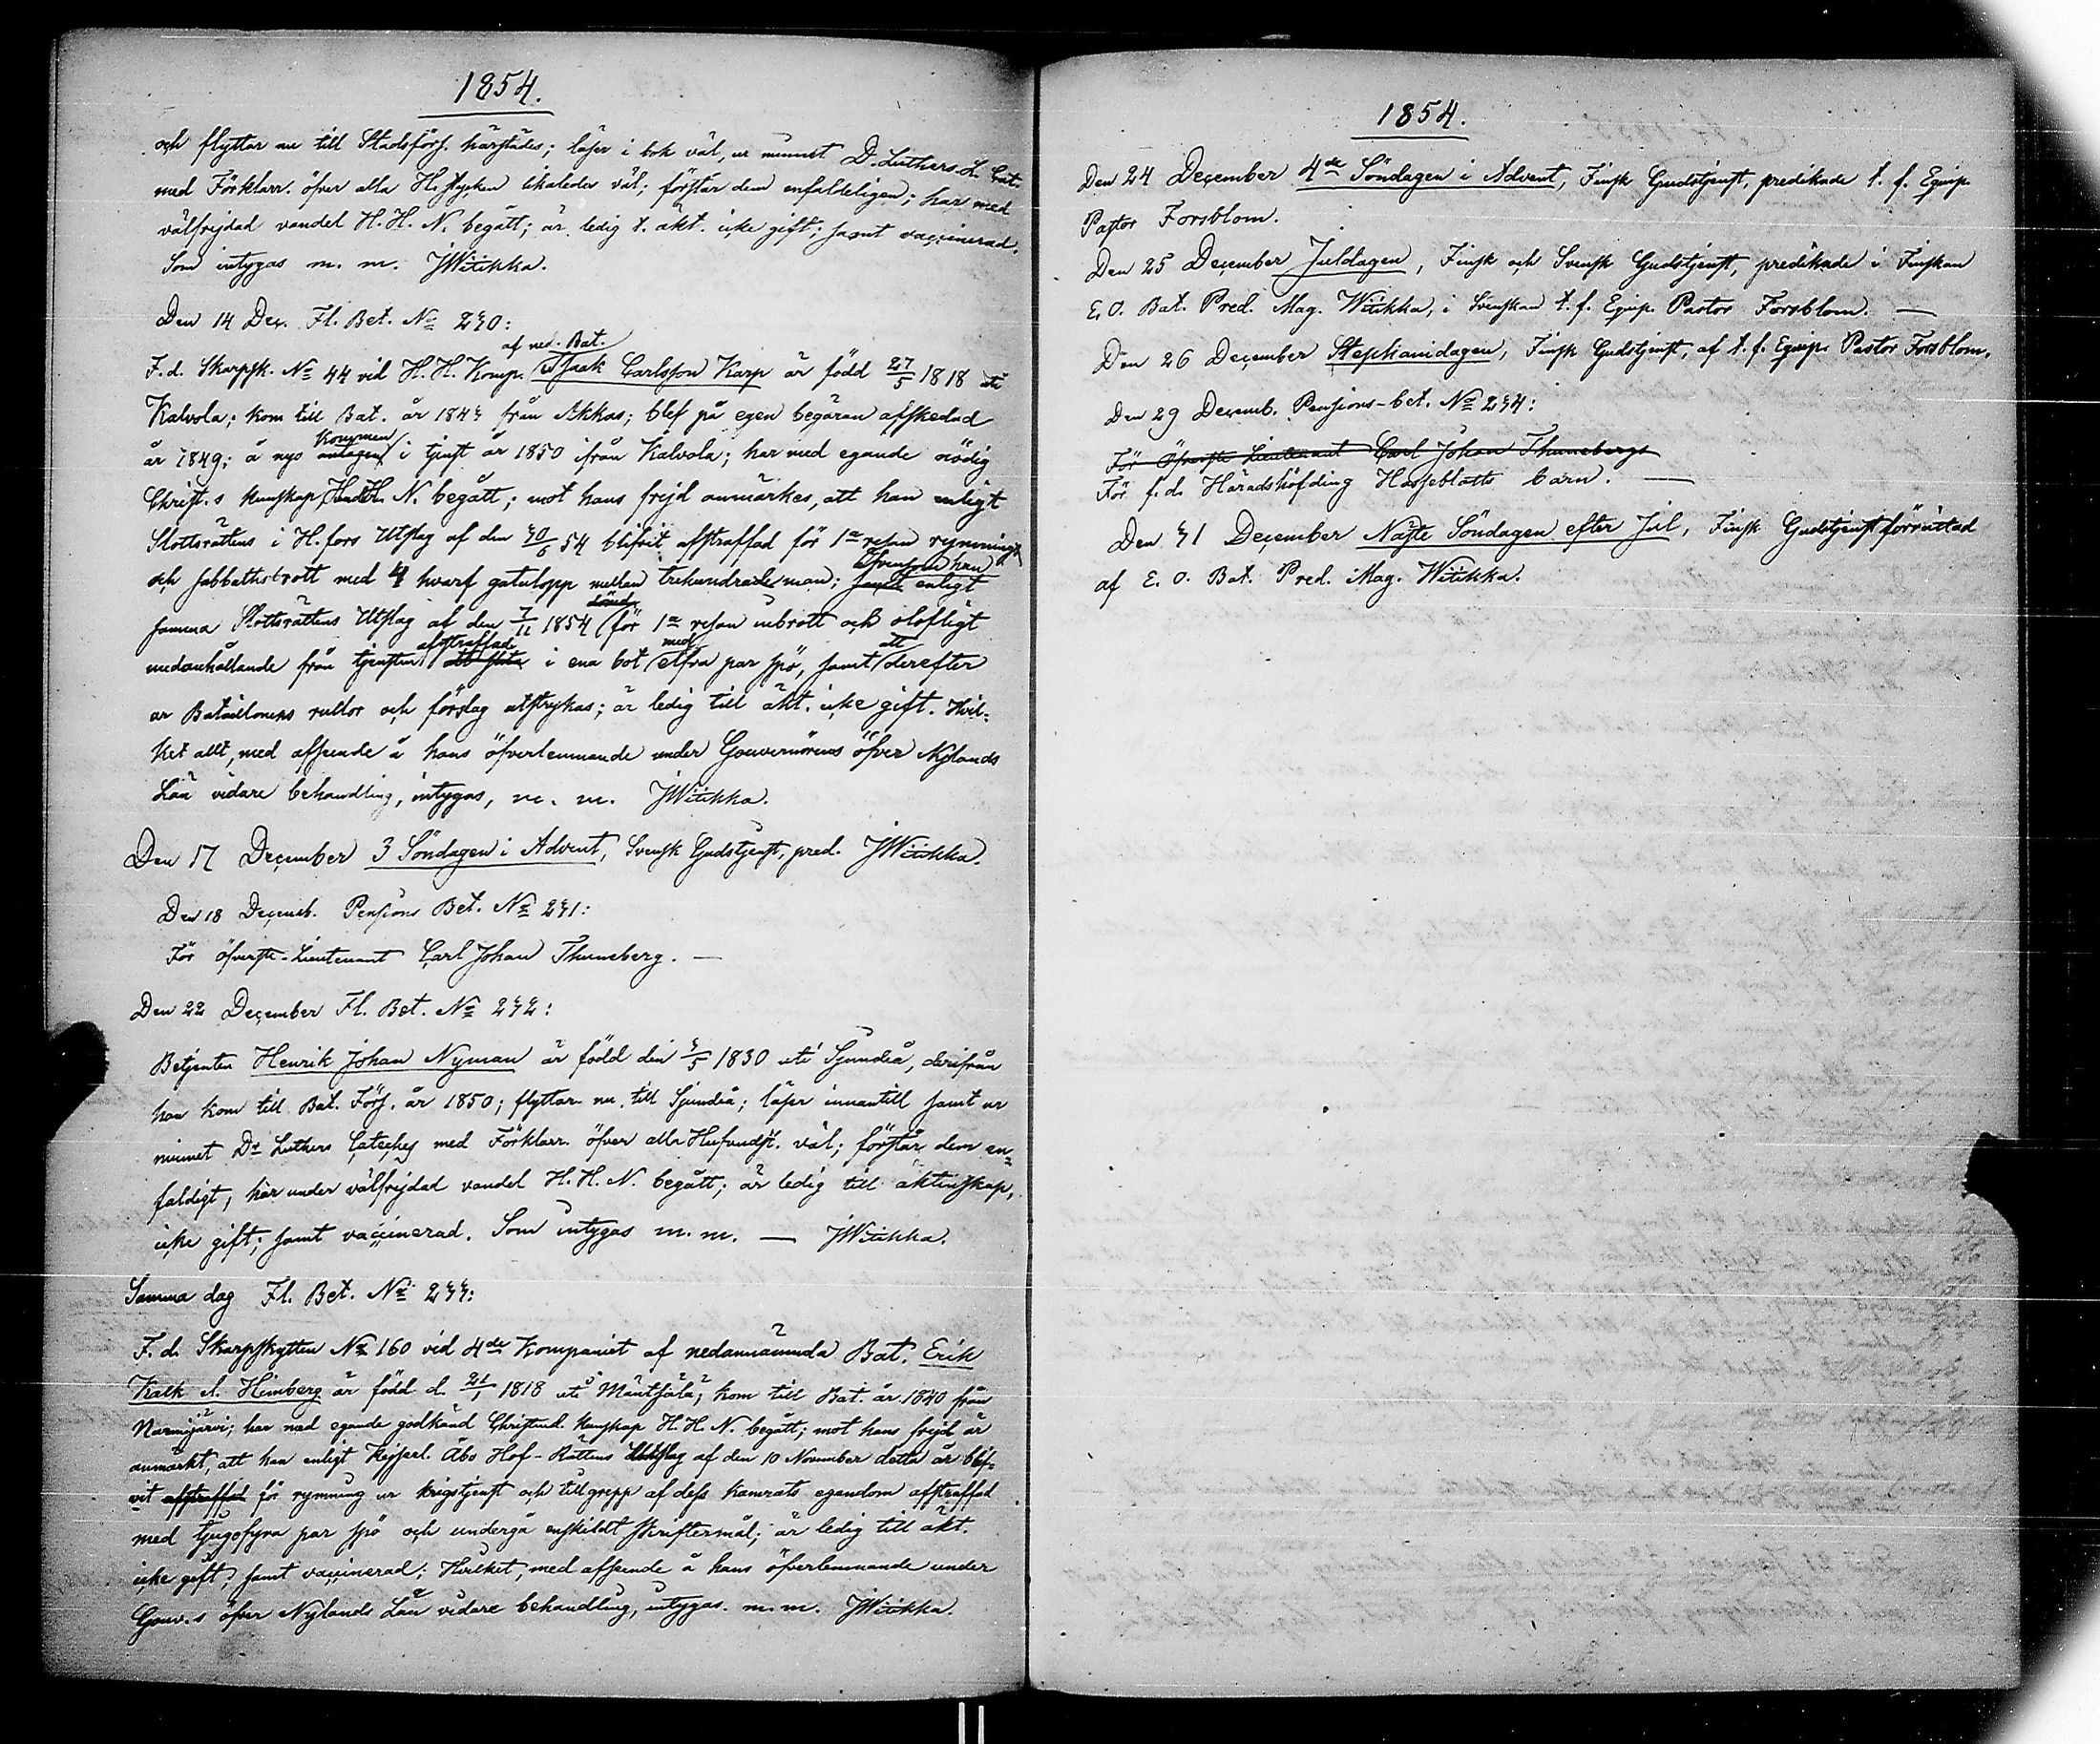 1854.
och flyttar nu till Stadsförs. härstädes; läser i bok väl, ur minnet D. Luthers L. Cat.
med Förklarr. öfver alla H.stycken likaledes väl; förstår dem enfaldeligen; har med
välfrejdad vandel H. H. N. begått; är ledig t. äkt. icke gift; samt vaccinerad.
Som intygas m. m. JWitikka.
Den 14 Dec. Fl. Bet. No 230:
af ned. Bat.
F. d. Skarpsk. No 44 vid H. H. Komp. Isaak Carlsson Karp är född 27/5 1818 uti
Kalvola; kom till Bat. år 1843 från Akkas; blef på egen begäran afskedad
år 1849; å nyo antagen kommen i tjenst år 1850 ifrån Kalvola; har med egande nödig
Christ.s kunskap H. H. N. begått; mot hans frejd anmärkes, att han enligt
Slottsrättens i H.fors Utslag af den 30/6 54 blifvit afstraffad för 1a resan rymning
och sabbathsbrott med 4 hvarf gatulopp mellan trehundrade man; samt äfvensom han enligt
samma Slottsrättens Utslag af den 7/11 1854 dömd för 1a resan inbrott och olofligt
undanhållande från tjensten att slita afstraffad i ena bot med elfva par spö, samt att derefter
ur Bataillonens rullor och förslag utstrykas; är ledig till äkt. icke gift. Hvil-
ket allt, med afseende å hans öfverlemnande under Gouvernörens öfver Nylands
Län vidare behandling, intygas, m. m. JWitikka.
Den 17 December 3 Söndagen i Advent, Svensk Gudstjenst, pred. JWitikka.
Den 18 Decemb. Pensions Bet. No 231:
För öfverste-Lieutenant Carl Johan Thuneberg. —
Den 22 December Fl. Bet. No 232:
Betjenten Henrik Johan Nyman är född den 3/5 1830 uti Sjundeå, derifrån
han kom till Bat. Förs. år 1850; flyttar nu till Sjundeå; läser innantill samt ur
minnet Dr Luthers Cateches med Förklarr. öfver alla Hufvudst. väl; förstår dem en-
faldigt, har under välfrejdad vandel H. H. N. begått; är ledig till äktenskap,
icke gift; samt vaccinerad. Som intygas m. m. — JWitikka.
Samma dag Fl. Bet. No 233:
F. d. Skarpskytten No 160 vid 4de Kompaniet af nedannämnda Bat. Erik
Kalk el. Heimberg är född d. 21/1 1818 uti Mäntsälä; kom till Bat. år 1840 från
Nurmijärvi; har med egande godkänd Christend. kunskap H. H. N. begått; mot hans frejd är
anmärkt, att han enligt Kejserl. Åbo Hof-Rättens Utslag af den 10 November detta år blif-
vit afstraffad för rymning ur krigstjenst och tillgrepp af dess kamrats egendom afstraffad
med tjugofyra par spö och undergå enskildt skriftermål; är ledig till äkt.
icke gift, samt vaccinerad; Hvilket, med afseende å hans öfverlemnande under
Gouv.s öfver Nylands Län vidare behandling, intygas. m. m. JWitikka.
1854.
Den 24 December 4de Söndagen i Advent, Finsk Gudstjenst, predikade t. f. Equip.
Pastor Forsblom.
Den 25 December Juldagen, Finsk och Svensk Gudstjenst, predikade i Finskan
E. O. Bat. Pred. Mag. Witikka, i Svenskan t. f. Equip. Pastor Forsblom. —
Den 26 December Stephanidagen, Finsk Gudstjenst, af t. f. Equip. Pastor Forsblom.
Den 29 Decemb. Pensions-bet. No 234:
För Öfverste Lieutenant Carl Johan Thunebergs
För f. d. Häradshöfding Hasseblatts barn. —
Den 31 December Näste Söndagen efter Jul, Finsk Gudstjenst förrättad
af E. O. Bat. Pred. Mag. Witikka.